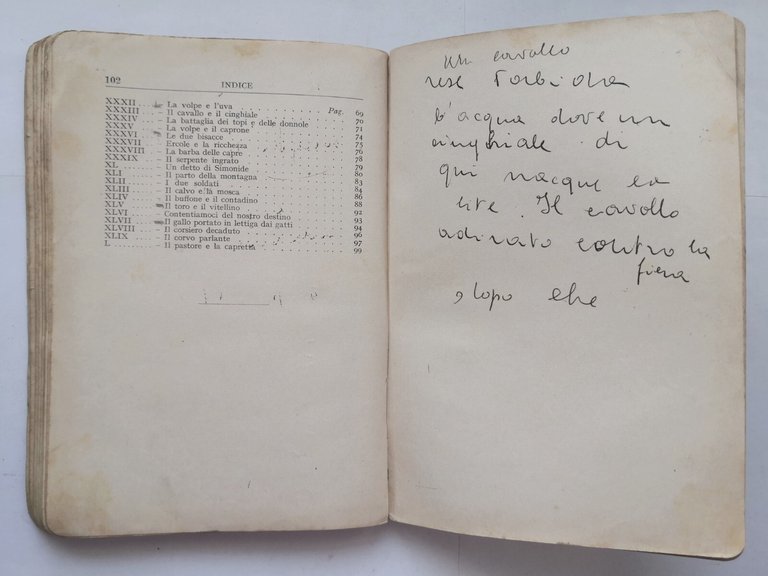 102 INDICE
XXXII - La volpe e l'uva Pag. 69
XXXIII - Il cavallo e il cinghiale 70
XXXIV - La battaglia dei topi e delle donnole 71
XXXV - La volpe e il caprone
XXXVI - Le due bisacce 74
XXXVII - Ercole e la ricchezza 75
XXXVIII - La barba delle capre 76
XXXIX - Il serpente ingrato 78
XL - Un detto di Simonide 79
XLI - Il parto della montagna 80
XLII - I due soldati 83
XLIII - Il calvo e la mosca 84
XLIV - Il buffone e il contadino 86
XLV - Il toro e il vitellino 88
XLVI - Contentiamoci del nostro destino 92
XLVII - Il gallo portato in lettiga dai gatti 93
XLVIII - Il corsiero decaduto 94
XLIX - Il corvo parlante 96
L - Il pastore e la capretta 97
99
Un cavallo
rese torbida
l'acqua dove un
cinghiale di
qui nacque la
lite. Il cavallo
adirato contro la
fiera
dopo che